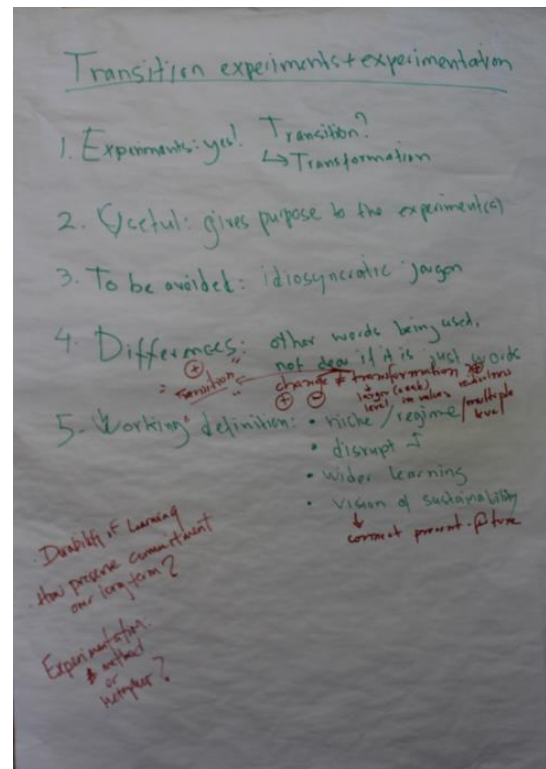 Transition experiments + experimentation
1. Experiments: yes! Transition?
↳ Transformation
2. Useful: gives purpose to the experiment(s)
3. To be avoided: idiosyncratic jargon
4. Differences: other words being used,
not clear if it is just words
"Transition" change ≠ transformation ≠
level, in values
5. "Working" definition: • niche / regime / multiple level
• disrupt
• wider learning
• vision of sustainability
↓
connect present - future
· Durability of Learning
· How preserve commitment
over long term?
Experimentation:
method
or
metaphor?